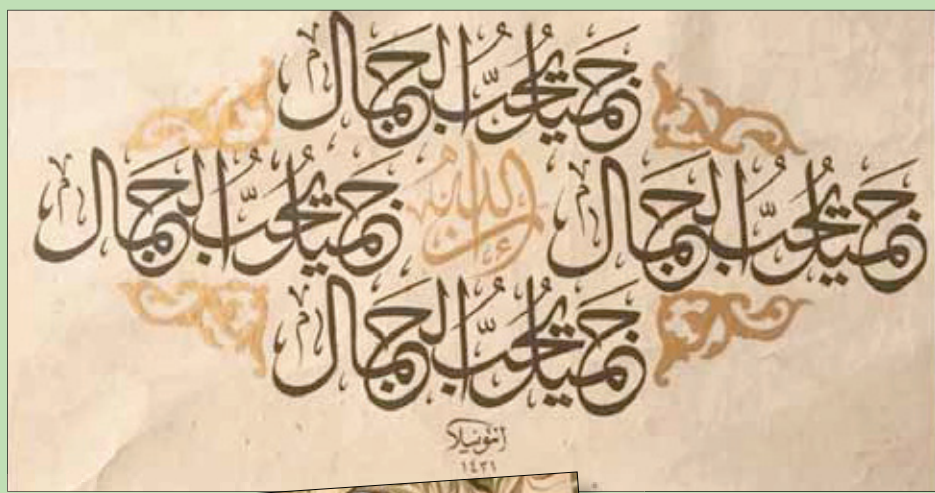 جميل يحب الجمال
جميل يحب الجمال إن الله جميل يحب الجمال
جميل يحب الجمال
انتونيلا
١٤٣١